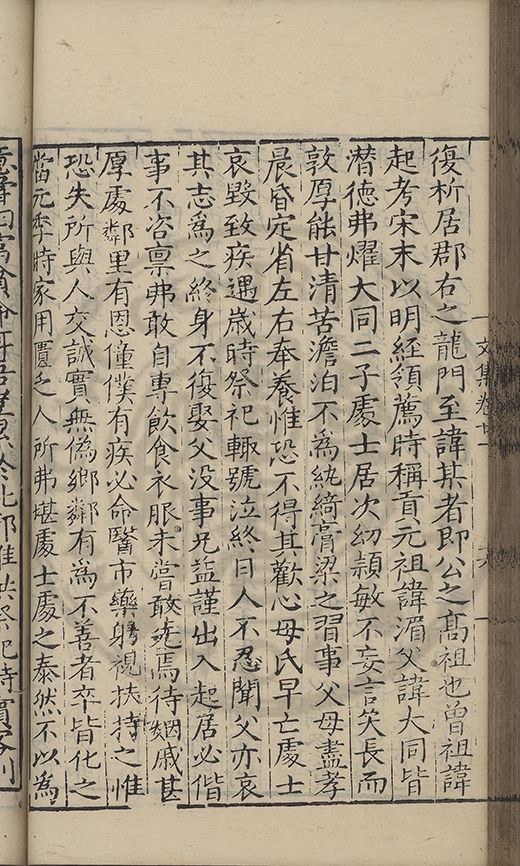 文集卷廿一
復析居郡右之龍門至諱某者即公之髙祖也曾祖諱
起考宋末以明經領薦時稱貢元祖諱湄父諱大同皆
潜徳弗耀大同二子處士居次幼頴敏不妄言笑長而
敦厚能甘清苦澹泊不為紈綺膏粱之習事父母盡孝
晨昏定省左右奉養惟恐不得其歡心母氏早亡處士
哀毀致疾遇歳時祭祀輙號泣終日人不忍聞父亦哀
其志為之終身不復娶父没事兄益謹出入起居必偕
事不咨禀弗敢自專飲食衣服未嘗敢先焉待姻戚甚
厚處鄰里有恩僮僕有疾必命醫市藥躬視扶持之惟
恐失所與人交誠實無偽鄉鄰有為不善者卒皆化之
當元季時家用匱乏人所弗堪處士處之泰然不以為